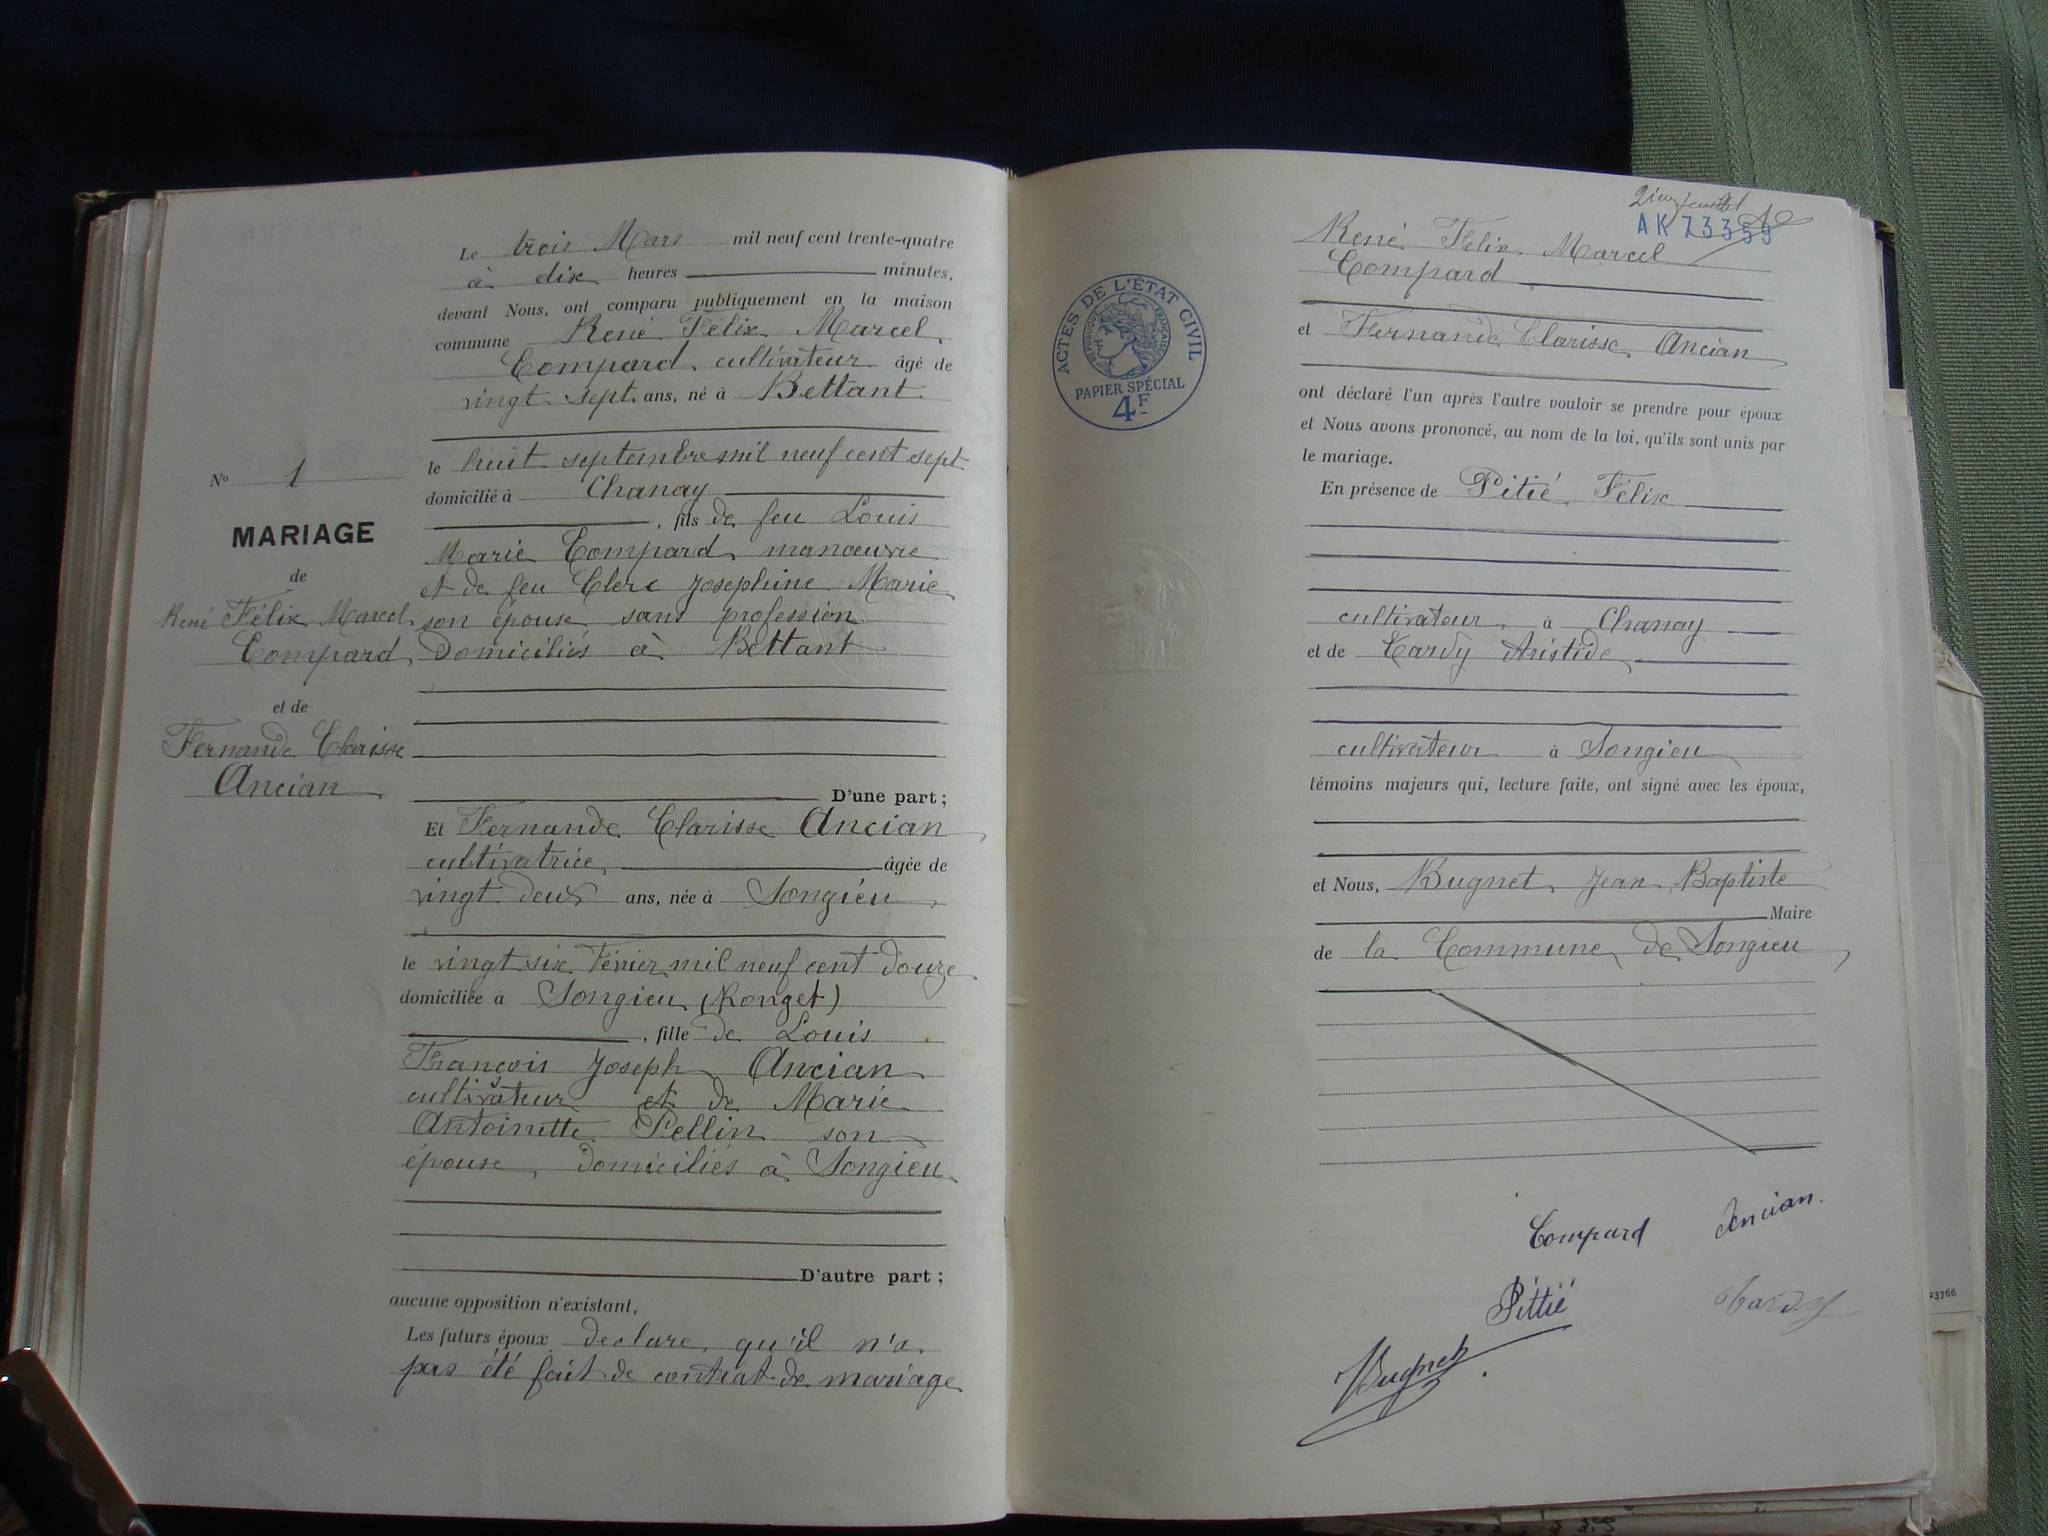 Le trois Mars mil neuf cent trente-quatre
à dix heures minutes,
devant Nous, ont comparu publiquement en la maison
commune René Félix Marcel
Compard cultivateur âgé de
vingt sept ans, né à Bettant
le huit septembre mil neuf cent sept
domicilié à Chanay
, fils de feu Louis
Marie Compard manœuvre
et de feu Clerc Josephine Marie
son épouse sans profession
Domiciliés à Bettant
D'une part ;
N° 1
MARIAGE
de
René Félix Marcel
Compard
et de
Fernande Clarisse
Ancian
Et Fernande Clarisse Ancian
cultivatrice, âgée de
vingt deux ans, née à Songieu
le vingt six Février mil neuf cent douze
domiciliée à Songieu (Ronget)
, fille de Louis
François Joseph Ancian
cultivateur et de Marie
Antoinette Pellin son
épouse, domiciliés à Songieu
D'autre part ;
aucune opposition n'existant,
Les futurs époux declare qu'il n'a
pas été fait de contrat de mariage
AK 73359
René Félix Marcel
Compard
et Fernande Clarisse Ancian
ACTES DE L'ÉTAT CIVIL
RÉPUBLIQUE FRANÇAISE
PAPIER SPÉCIAL
4F
ont déclaré l'un après l'autre vouloir se prendre pour époux
et Nous avons prononcé, au nom de la loi, qu'ils sont unis par
le mariage.
En présence de Pitié Félix
cultivateur à Chanay
et de Tardy Aristide
cultivateur à Songieu
témoins majeurs qui, lecture faite, ont signé avec les époux,
et Nous, Bugnet Jean Baptiste
Maire
de la Commune de Songieu
Compard Ancian.
Pittié Tardy
Bugnet
23766